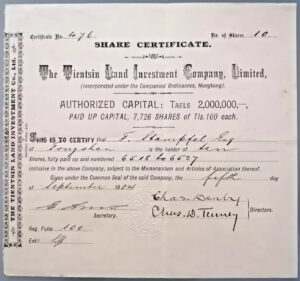 Certificate No. 476.
No. of Shares 10
SHARE CERTIFICATE.
The Tientsin Land Investment Company, Limited,
(Incorporated under the Companies' Ordinances, Hongkong).
AUTHORIZED CAPITAL: TAELS 2,000,000,—,
PAID UP CAPITAL, 7,726 SHARES of Tls. 100 each.
THIS IS TO CERTIFY that Esq
of Tongshan is the holder of ten
Shares, fully paid up and numbered 6518 to 6527
inclusive in the above Company, subject to the Memorandum and Articles of Association thereof.
Given under the Common Seal of the said Company, this fifth day
of September
Secretary.
Chas Denby
Chas. D. Tenney
Directors.
Reg. Folio 100
Entd.
THE TIENTSIN LAND INVESTMENT CO., LTD.